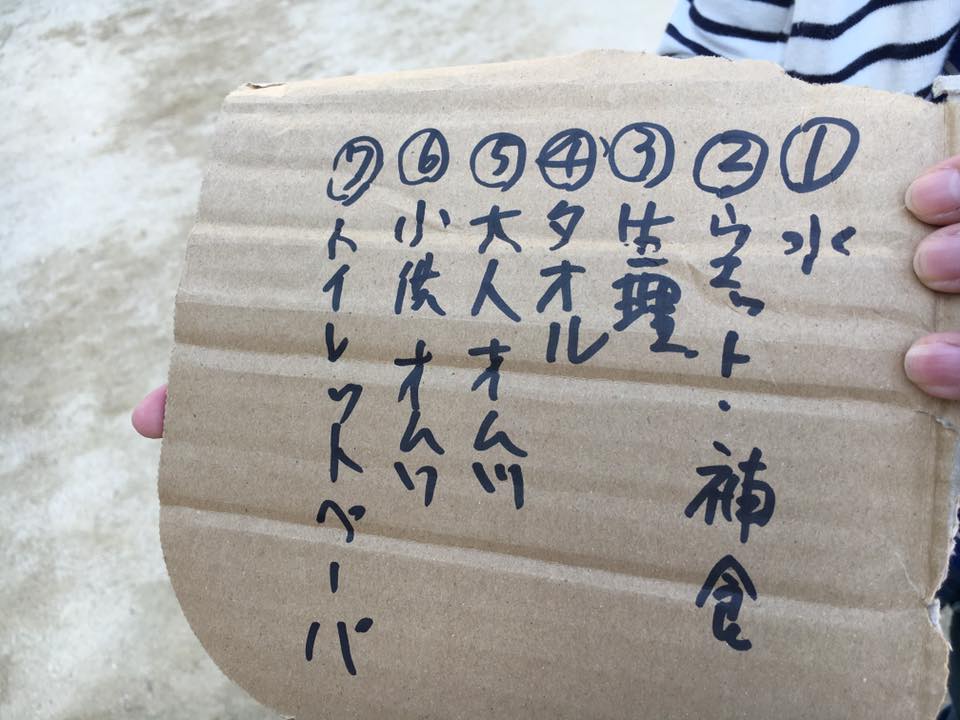 ①水
②ウエット・補食
③生理
④タオル
⑤大人オムツ
⑥小供オムツ
⑦トイレットペーパ